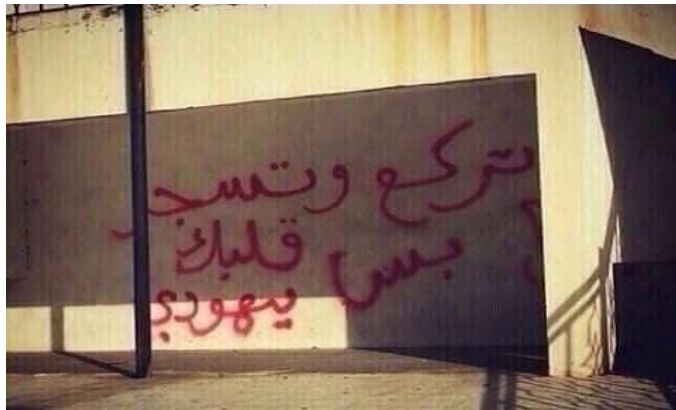 تركع وتسجد
بس قلبك
يهودي